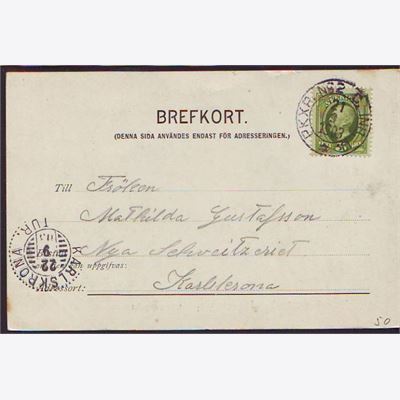 BREFKORT.
(DENNA SIDA ANVÄNDES ENDAST FÖR ADRESSERINGEN.)
PKXP. Nº2
Till Fröken
Mathilda Gustafsson
Nya Schweitzeriet
uppgifvas:
Karlskrona
KARLSKRONA
TUR
22
9
50